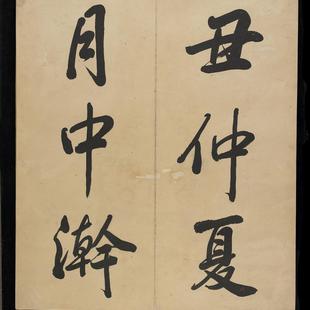 丑仲夏
月中澣